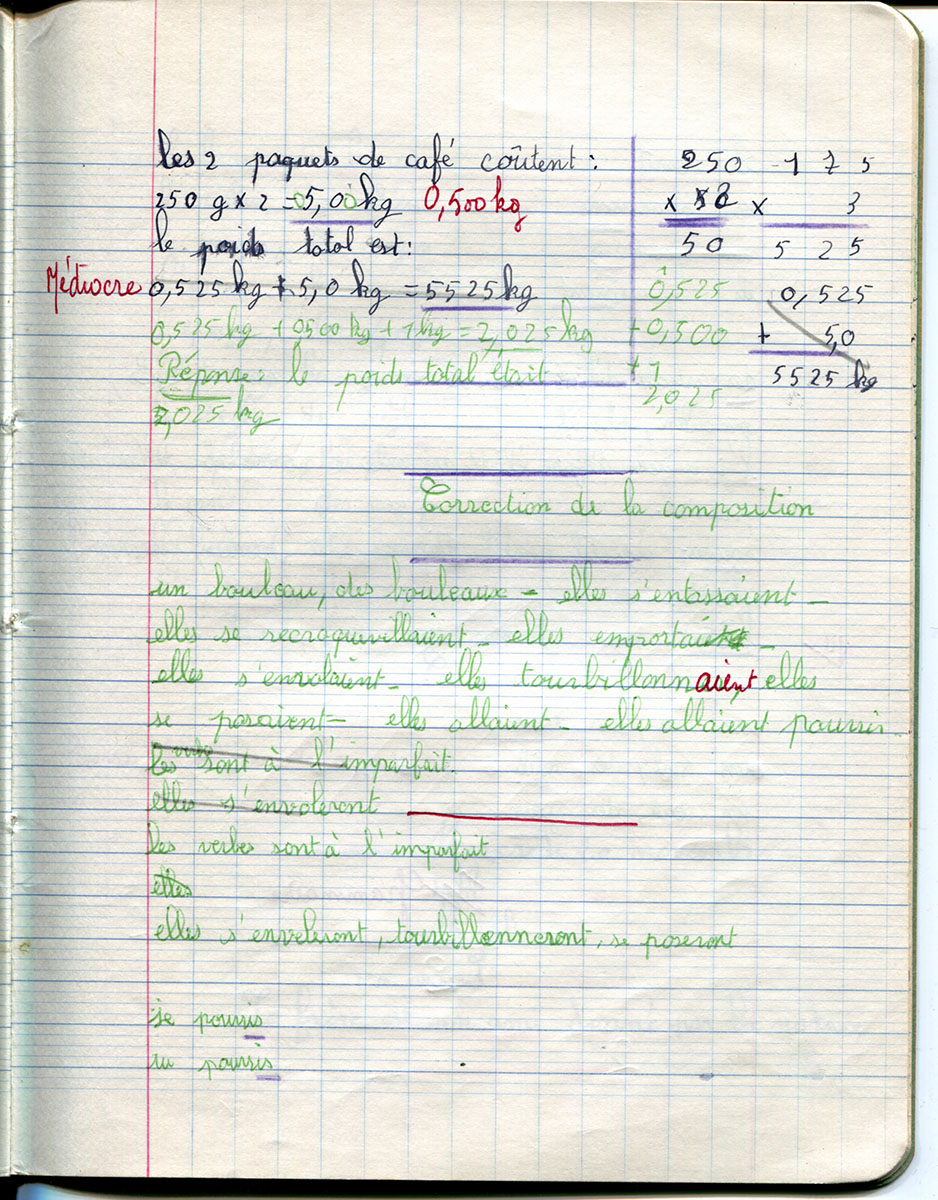 les 2 paquets de café coûtent :
250 g x 2 = 05,00 kg 0,500 kg
le poids total est :
Médiocre 0,525 kg + 5,0 kg = 5525 kg
0,525 kg + 0500 kg + 1 kg = 2,025 kg
Réponse : le poids total était
2,025 kg
250
x 2
50
175
x 3
525
0,525
+ 0,500
+ 1
2,025
0,525
+ 5,0
5525 kg
Correction de la composition
un bouleau, des bouleaux – elles s'entassaient –
elles se recroquevillaient – elles emportaient –
elles s'envolaient – elles tourbillonnaient, elles
se posaient – elles allaient – elles allaient pourrir
les verbes sont à l'imparfait.
elles s'envoleront
les verbes sont à l'imparfait
elles
elles s'enveleront, tourbillonneront, se poseront
je pourris
tu pourris